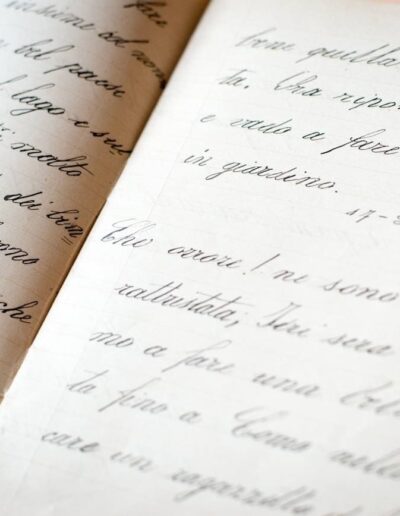 fare
insieme ad
bel paese
lago e sul
molto
dei bim
rono
che
bene quella
ta. Ora ripo
e vado a fare
in giardino.
17-
Che orrore! ne sono
rattristata; Ieri sera
mo a fare una bel
ta fino a Como nel
care un ragazzetto